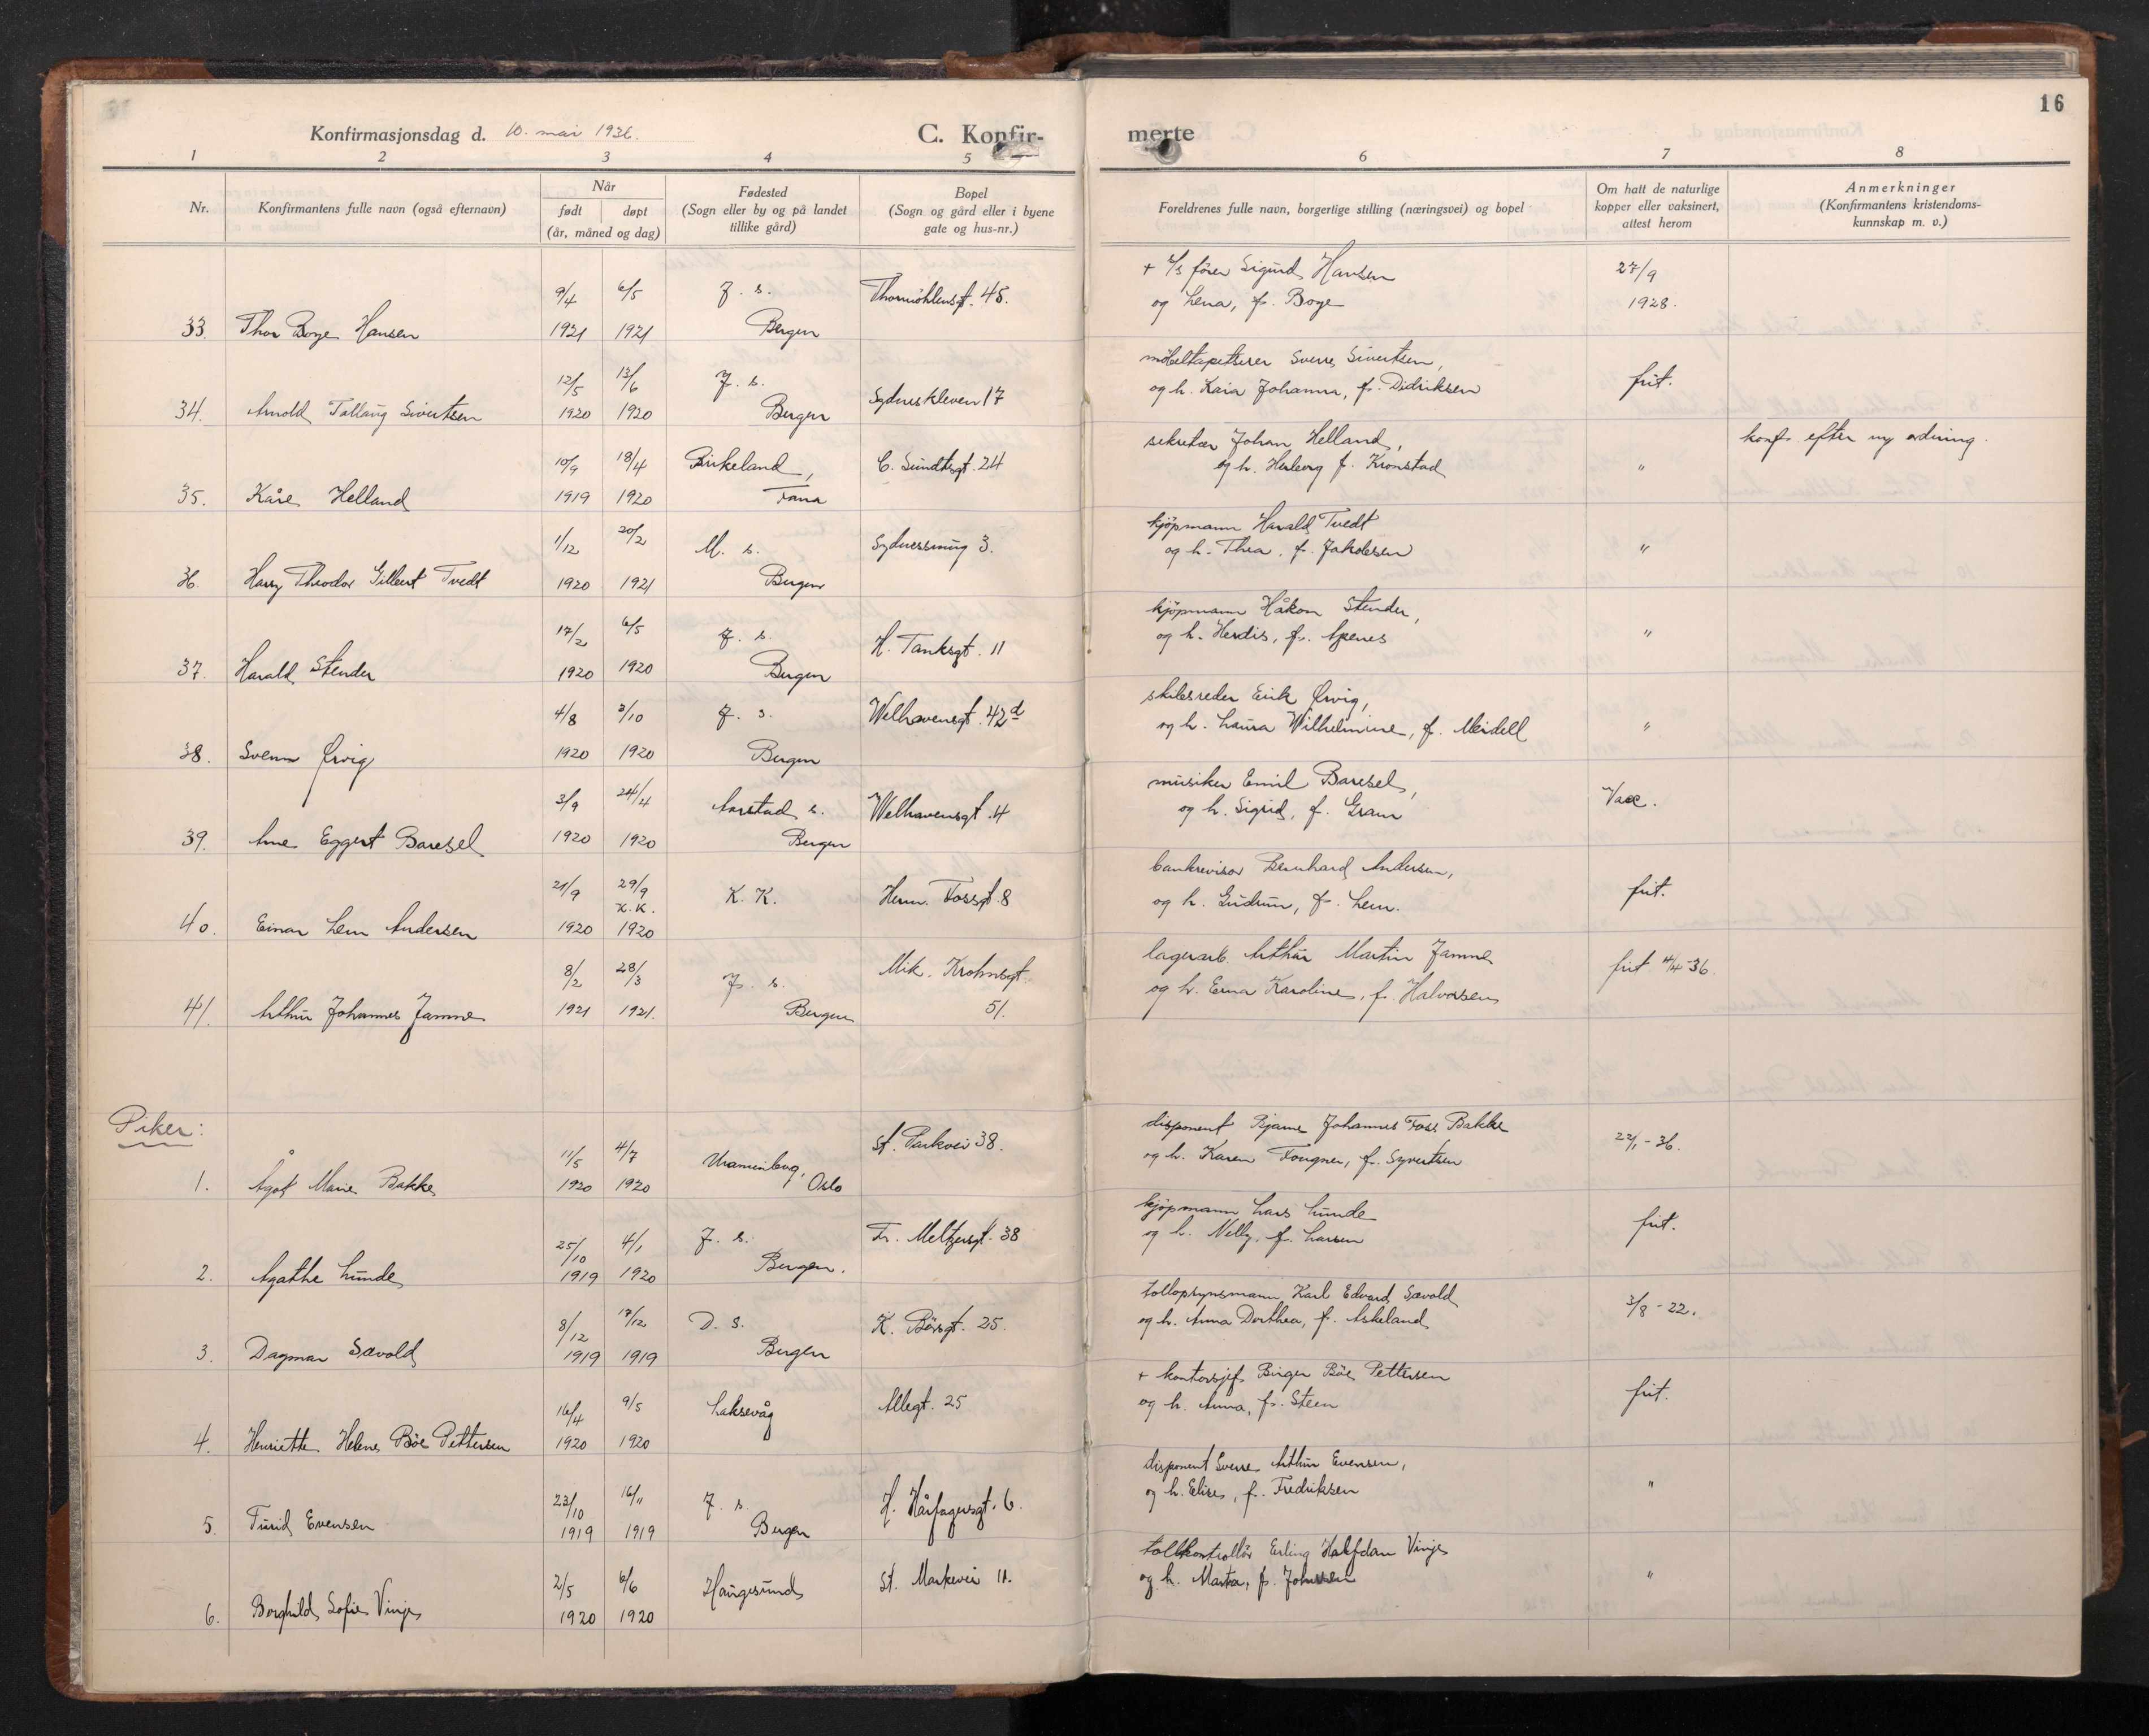 16
Konfirmasjonsdag d. 10. mai 1936.
C. Konfir-
merte
1 2 3 4 5 6 7 8
Nr.
Konfirmantens fulle navn (også efternavn)
Når
født døpt
(år, måned og dag)
Fødested
(Sogn eller by og på landet
tillike gård)
Bopel
(Sogn og gård eller i byene
gate og hus-nr.)
Foreldrenes fulle navn, borgerlige stilling (næringsvei) og bopel
Om hatt de naturlige
kopper eller vaksinert,
attest herom
Anmerkninger
(Konfirmantens kristendoms-
kunnskap m. v.)
9/4 6/5 J. s. Thormöhlensgt. 45. + fører Sigurd Hansen 27/9
33. Thor Boge Hansen 1921 1921 Bergen og Lena, f. Boge 1928.
12/5 13/6 J. s. Sydneskleven 17 möbeltapetserer Sverre Sivertsen,
34. Arnold Tallaug Sivertsen 1920 1920 Bergen og h. Kaia Johanna, f. Didriksen frit.
10/9 18/4 Birkeland, C. Sundtsgt. 24 sekretær Johan Helland, konf. efter ny ordning.
35. Kåre Helland 1919 1920 Fana og h. Herborg f. Kronstad "
1/12 20/2 M. s. Sydnessmug 3. kjøpmann Harald Tvedt
36. Harry Theodor Gilbert Tvedt 1920 1921 Bergen og h. Thea, f. Jakobsen "
17/2 6/5 J. s. H. Tanksgt. 11 kjøpmann Håkon Stender,
37. Harald Stender 1920 1920 Bergen og h. Herdis, f. Apenes "
4/8 3/10 J. s. Welhavensgt. 42d skibsreder Erik Ørvig,
38. Svenn Ørvig 1920 1920 Bergen og h. Laura Wilhelmine, f. Meidell "
3/9 24/4 Aarstad s. Welhavensgt. 4 musiker Emil Baresel, Vacc.
39. Arne Eggert Baresel 1920 1920 Bergen og h. Sigrid, f. Gram
21/9 29/9 K.K. K. K. Herm. Fossgt. 8 bankrevisor Bernhard Andersen, frit.
40. Einar Lem Andersen 1920 1920 og h. Gudrun, f. Lem.
8/2 28/3 J. s. Mik. Krohnsgt. lagerarb. Arthur Martin Jamne frit 4/4-36.
41. Arthur Johannes Jamne 1921 1921. Bergen 51. og h. Erna Karoline, f. Halvorsen
Piker:
11/5 4/7 Uranienborg, St. Parkvei 38. disponent Bjarne Johannes Foss Bakke 22/1-36.
1. Ågot Marie Bakke 1920 1920 Oslo og h. Karen Fougner, f. Syvertsen
25/10 4/1 J. s. Fr. Meltzersgt. 38 kjøpmann Lars Lunde frit.
2. Agathe Lunde 1919 1920 Bergen. og h. Nelly, f. Larsen
8/12 17/12 D. s. K. Börsgt. 25. tollopsynsmann Karl Edvard Sævold 3/8-22.
3. Dagmar Sævold 1919 1919 Bergen og h. Anna Dorthea, f. Askeland
16/4 9/5 Laksevåg Allegt. 25 + kontorsjef Birger Böe Pettersen frit.
4. Henriette Helene Böe Pettersen 1920 1920 og h. Anna, f. Steen
23/10 16/11 J. s. H. Hårfagersgt. 6. disponent Sverre Arthur Evensen, "
5. Turid Evensen 1919 1919 Bergen og h. Elise, f. Fredriksen
2/5 6/6 Haugesund St. Markevei 11. tollkontrollör Erling Halfdan Vinje "
6. Borghild Sofie Vinje 1920 1920 og h. Marta, f. Johnsen